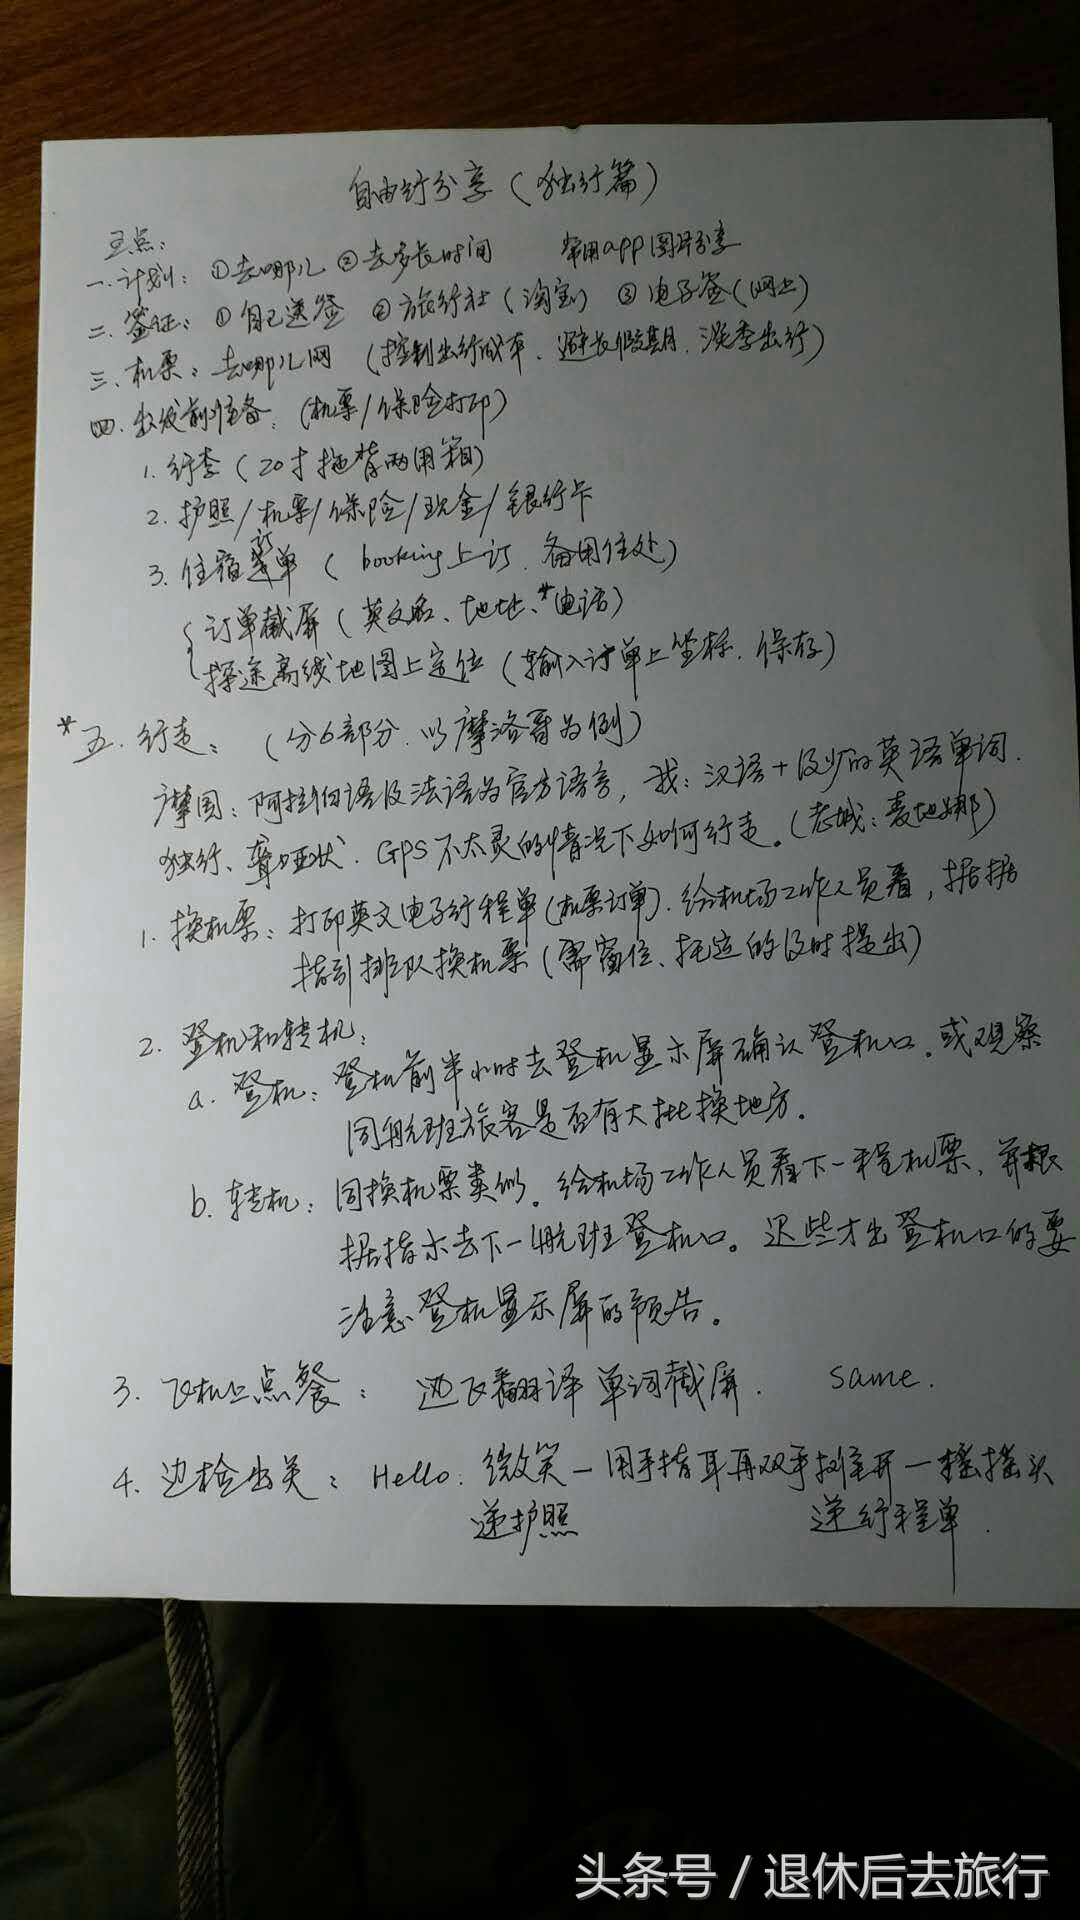 自由行分享(独行篇)
五点:
一.计划:①去哪儿 ②去多长时间 常用app图片分享
二.签证:①自己送签 ②旅行社(淘宝) ③电子签(网上)
三.机票:去哪儿网(控制出行成本、避长假期、淡季出行)
四.出发前准备:(机票/保险打印)
1.行李(20寸拖背两用箱)
2.护照/机票/保险/现金/银行卡
3.住宿订单(booking上订、备用住处)
订单截屏(英文名、地址、*电话)
探途离线地图上定位(输入订单上坐标、保存)
*五.行走:(分6部分、以摩洛哥为例)
摩国:阿拉伯语及法语为官方语言,我:汉语+极少的英语单词.
独行、聋哑状、GPS不太灵的情况下如何行走。(老城:麦地娜)
1.换机票:打印英文电子行程单(机票订单).给机场工作人员看,根据
指引排队换机票(需窗位、托运的及时提出)
2.登机和转机:
a.登机:登机前半小时去登机显示屏确认登机口。或观察
同航班旅客是否有大批换地方。
b.转机:同换机票类似。给机场工作人员看下一程机票,并根
据指示去下一航班登机口。迟些才出登机口的要
注意登机显示屏的预告。
3.飞机上点餐:边飞翻译单词截屏. same.
4.边检出关:Hello.微笑—用手指耳再双手摊开—摇摇头
递护照 递行程单.
头条号/退休后去旅行